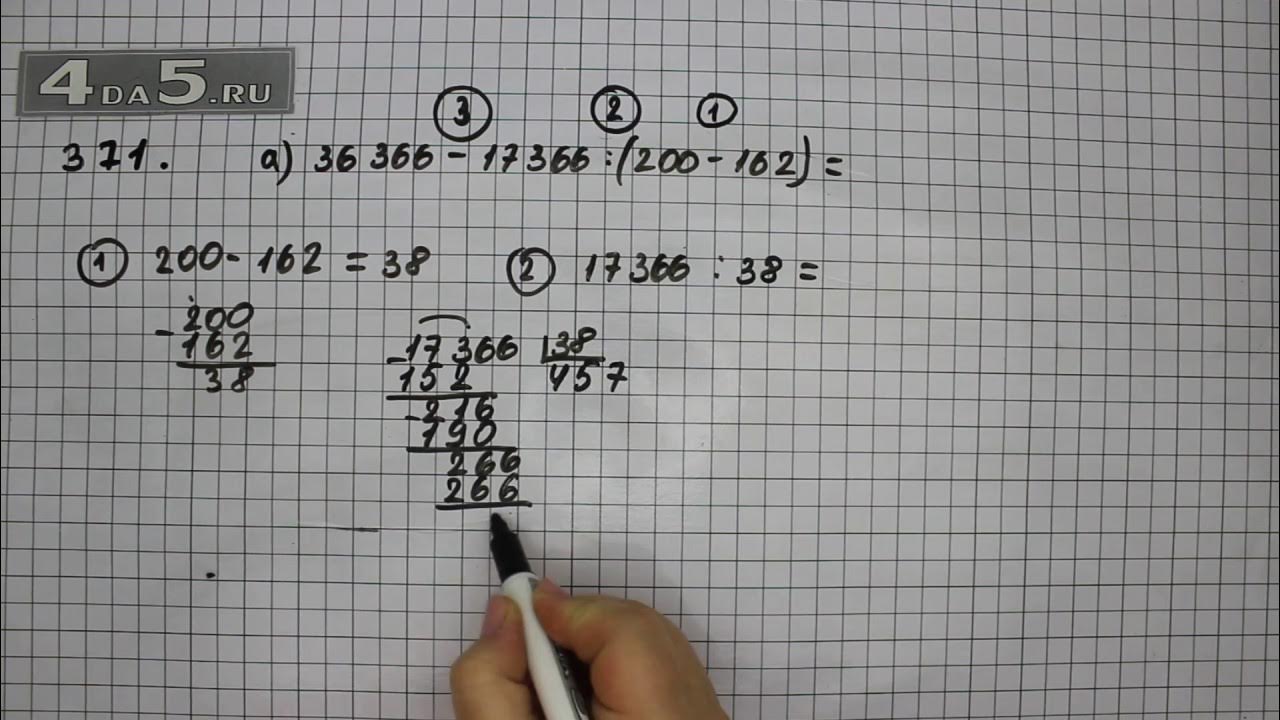 4DA5.RU
③ ② ①
371. а) 36 366 - 17 366 : (200 - 162) =
① 200 - 162 = 38 ② 17366 : 38 =
-200
162
38
-17366 38
152 457
-216
190
266
266